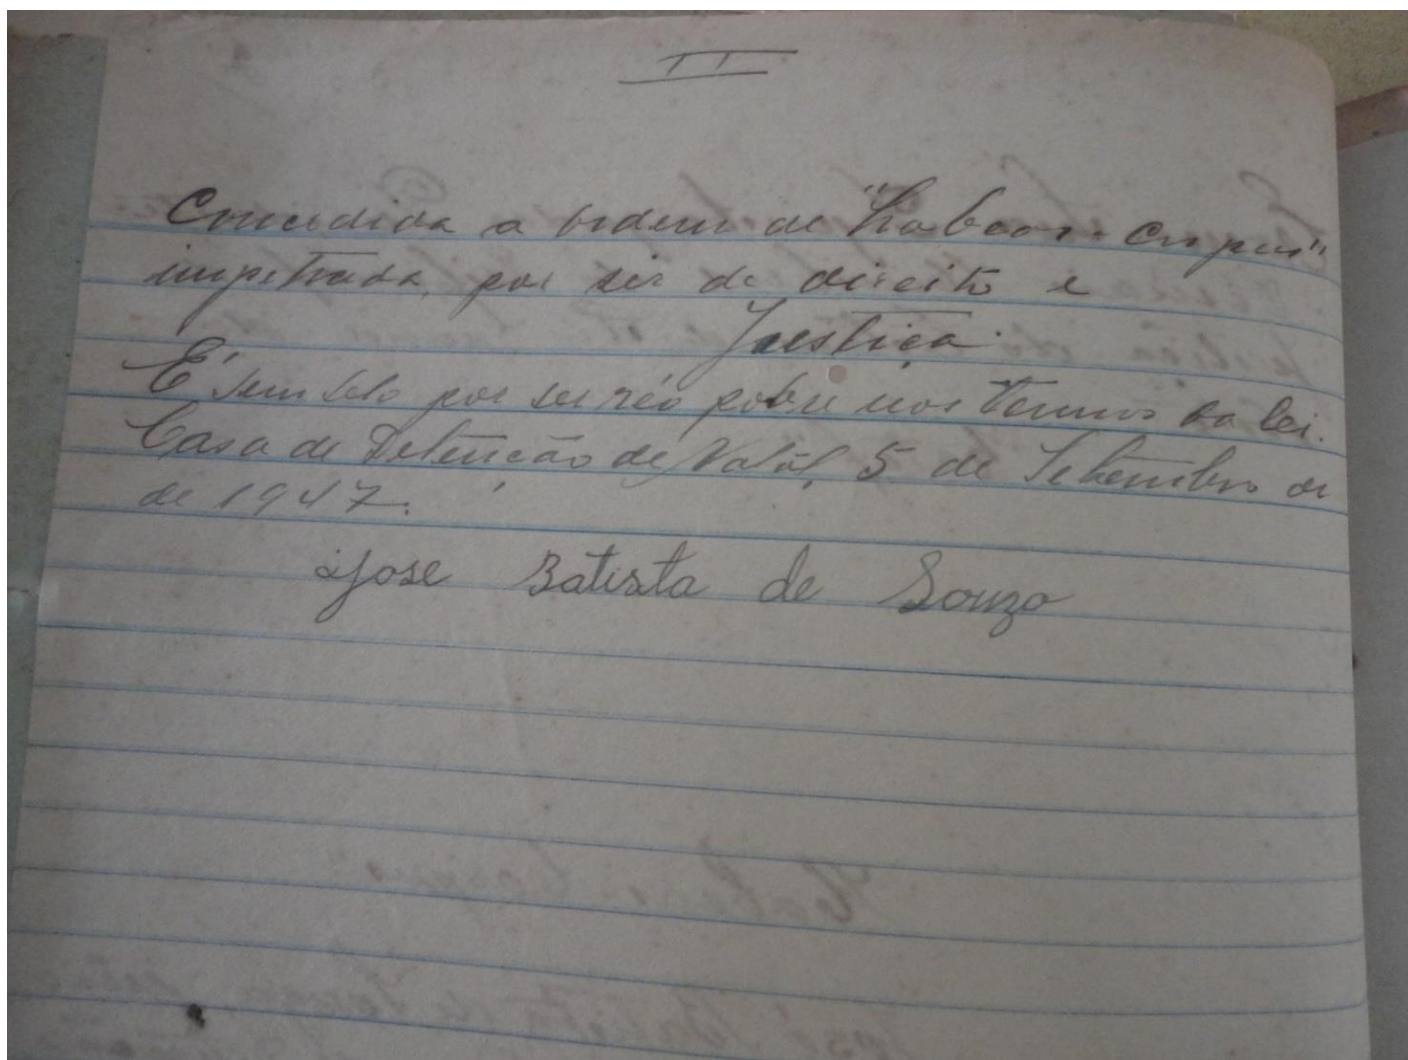 II
Concedida a ordem de "habeas-corpus"
impetrada, por ser de direito e
Justiça.
É sem selo por ser réo pobre nos termos da lei.
Casa de Detenção de Natal, 5 de Setembro de
de 1947.
José Batista de Souza